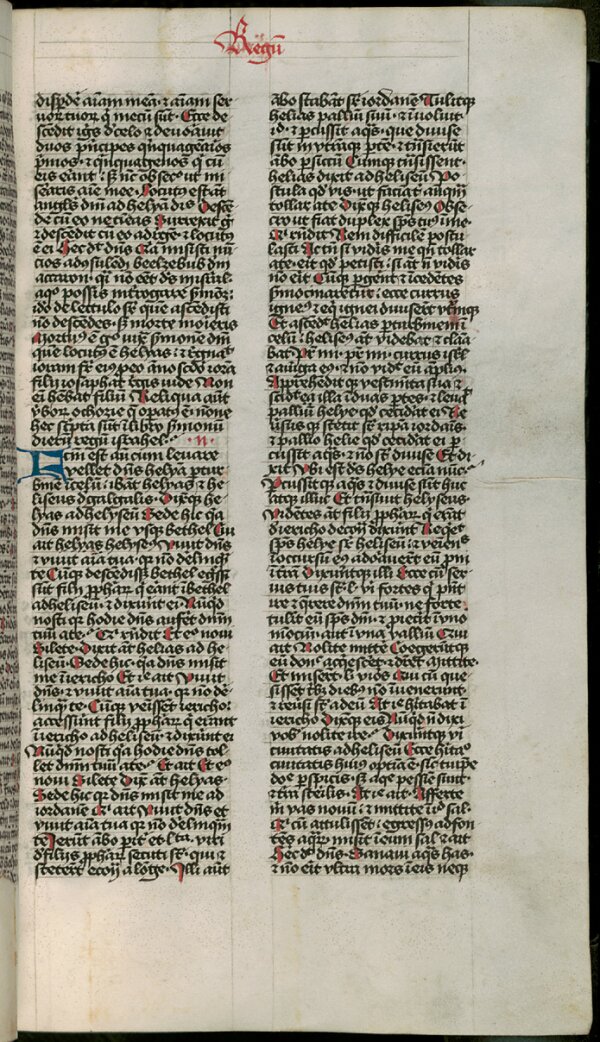 Regū
disp̄dē aīam meā · ⁊ aīam ser
uor̄ tuor̄ q̄ mecū sūt · Ecce de
scēdit igīs d̓ celo ⁊ deuorauit
duos p̓ncipes qīnquagēaios
p̓mos · ⁊ qīnquagenos q̓ cū
eis erant · Sȝ nūc obsecͦ ut mi
searis aīe mee · Locutꝰ est āt
angl̄s dn̄i ad helyā dn̄s Descē
de cū eo ne timeas Surrexit ḡ
⁊ descēdit cū eo ad regē ⁊ locutꝰ
ē ei Hec dt̄ dn̄s Q̄a misisti nū
cios ad ɔsulēdū beelzebub dm̄
accaron · q̓i nō eēt dꝰs in isrl̄ ·
a quo possis int̓rogare s̓monē:
ido̓ de lectulo sr̄ que ascēdisti
nō descēdes · sȝ morte moīeris
Mortuꝰ ē ḡ iux̄ smonē dn̄i
quē locutꝰ ē helyas · ⁊ r̓gnaͭ
ioram fr̄ eiꝰ ꝓ eo āno scd̓o iorā
filij iosaphat regis iude Non
ei hēbat filiū Reliqua aūt
ȳbor̄ ochozie q̄ opatꝰ ē nōne
hec sc̓pta sūt ī libro s̓monū
dierū regū israhel · · II ·
Fctm̄ est aū cum leuare
vellet dn̄s helyā p̄ tur
binē ī celū: ibāt helyas ⁊ he
liseus d̓ galgalis · Dixitqȝ he
lyas ad helyseū Sede hic q̄a
dn̄s misit me vsqȝ bethel Cui
ait helyseꝰ Viuit dn̄s
⁊ viuit aīa tua · q̓ nō delinqͣ
te Cūqȝ descēdissȝ bethel eg̓ssi
sūt filij ꝓphar̄ q̓ erāt ī bethel
ad heliseū · ⁊ dixūnt ei · Nūqͥd
nosti q̓ hodie dn̄s aufēt dn̄m
tuū a te · Qͥ rn̄dit Et eͦ noui
Silete · Dixit āt helias ad he
liseū · Sede hic · q̄a dn̄s misit
me ī iericho Et īe ait Viuit
dn̄s · ⁊ viuit aīa tua · q̓ nō de
linqͣ te · Cūqȝ veīssēt iericho:
accessīūt filij ꝓphar̄ q̓ erānt
ī iericho ad heliseū · ⁊ dixēūt ei
Nūqͥd nosti q̓a hodie dn̄s tol
let dn̄m tuū a te · Et ait Et eͦ
noui Silete Dix̄ āt helyas ·
Sede hic q̄a dn̄s misit me ad
iordanē Qͥ ait Viuit dn̄s et
viuit aīa tua q̓ nō delinqͣm
te Ierūt ābo pit̓ · et l̄ta viri
d̓ filijs ꝓphar̄ secuti st̄ · qui ⁊
stetert̄ ecōt̓ a lōge · Illi aūt
ābo stabāt sr̄ iordanē Tulitqȝ
helias palliū suū · ⁊ īuoluit
id · ⁊ p̄cussit aqͣs · que diuise
sūt in vtraqȝ p̄te · ⁊ tn̄sierūt
ābo p̄ siccū Cūmqȝ tn̄sissent ·
helias dixit ad heliseū Po
stula qͥd vis · ut faciā t̓ · anqͣm
tollar a te Dixitqȝ heliseꝰ Obse
cro ut fiat duplex sp̄s tuꝰ ī me ·
Qͥ rn̄dit Rem difficilē postu
lasti At tn̄ si vid̓is me qn̄ tollar
a te · eīt qͥd petisti: si āt nō vid̓is
nō eīt Cūqȝ p̄gent̄ · ⁊ īcedētes
s̓mocīnaret̄ur: ecce currus
igneꝰ · ⁊ eqͥ ignei diuisert̄ vt̓mqȝ
Et ascēdͭ helias p̄ turbinem ī
celū: heliseꝰ āt videbat ⁊ clāa
bat Pr̄ mi · pr̄ mi · currus isrl̄
⁊ auriga eiꝰ · ⁊ nō vidͭ eū āpliꝰ ·
Apprehēditqȝ vestimēta sua ⁊
scidit ea illa ī duas p̄tes · ⁊ leuaͭ
palliū helye qd̓ cecidat ei Re
ūsusqȝ stetit sr̄ ripā iordaīs ·
⁊ palllo helie qd̓ cecidat ei p̄
cussit aqͣs · ⁊ nō st̄ diuise Et di
xit Vbi est dꝰs helye ecīa nūc ·
P̄cussitqȝ aqͣs · ⁊ diuise sūt huc
atqȝ illuc Et tn̄siuit helyseus
Vidētes āt filij ꝓphar̄ q̓ erāt
ī iericho decōt̓ dixūnt Requieͭ
sp̄s helye sr̄ heliseū · ⁊ veīenēs
ī occursū eiꝰ adorauert̄ eū p̄ni
ī t̄rā Dixūntqȝ illi Ecce cū ser
uis tuis st̄ · l · vi̓ fortes q̓ pn̄t
ire ⁊ q̄rere dn̄m tuū · ne forte
tulit eū sp̄s dn̄i · ⁊ piecit ī vno
mōciū · aut ī vna valliū Qui
ait Nolite mitt̓e Coegerūtqȝ
eū don̓ · acq̓esc̓et · ⁊ dic̓et Mittite ·
Et misert̄ · l · viros Qui cū que
sissent t̓b dieb̄ · nō īuenerunt ·
⁊ reūsi st̄ ad eū Āt īe hītabat ī
iericho Dixitqȝ eis Nūqͥd nō dixi
vob̄ · nolite ire · Dixūntqȝ vi
ciuitatis ad heliseū Ecce hītāͦ
ciuitatis huiꝰ optīa ē · sic̄ tu ip̄e
dn̄e p̄spicis · sȝ aque pessīe sunt ·
⁊ t̄ra sterilis · At īe ait · Afferte
m̓ vas nouū · ⁊ mittite ī id̓ sal ·
Qͥ cū attulissēt · eg̓ssꝰ ad fon
tes aqͣr̄ · misit ī eum sal · ⁊ ait
Hec dt̄ dn̄s · Sanaui aqͣs has ·
⁊ nō eīt vltra mors ī eis neqȝ